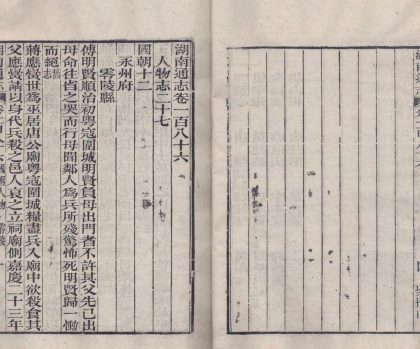 湖南通志卷一百八十六
人物志二十七
國朝十二
永州府
零陵縣
傅明賢順治初粵寇圍城明賢負母出門者不許其父先已出
母命往省之哭而行母聞鄰人為兵所殘驚怖死明賢歸一慟
而絕舊志
蔣應鸞世為巫居唐公廟粵寇圍城糧盡兵入廟中欲殺食其
父應鸞請以身代兵殺之邑人哀之立祠廟側嘉慶二十三年